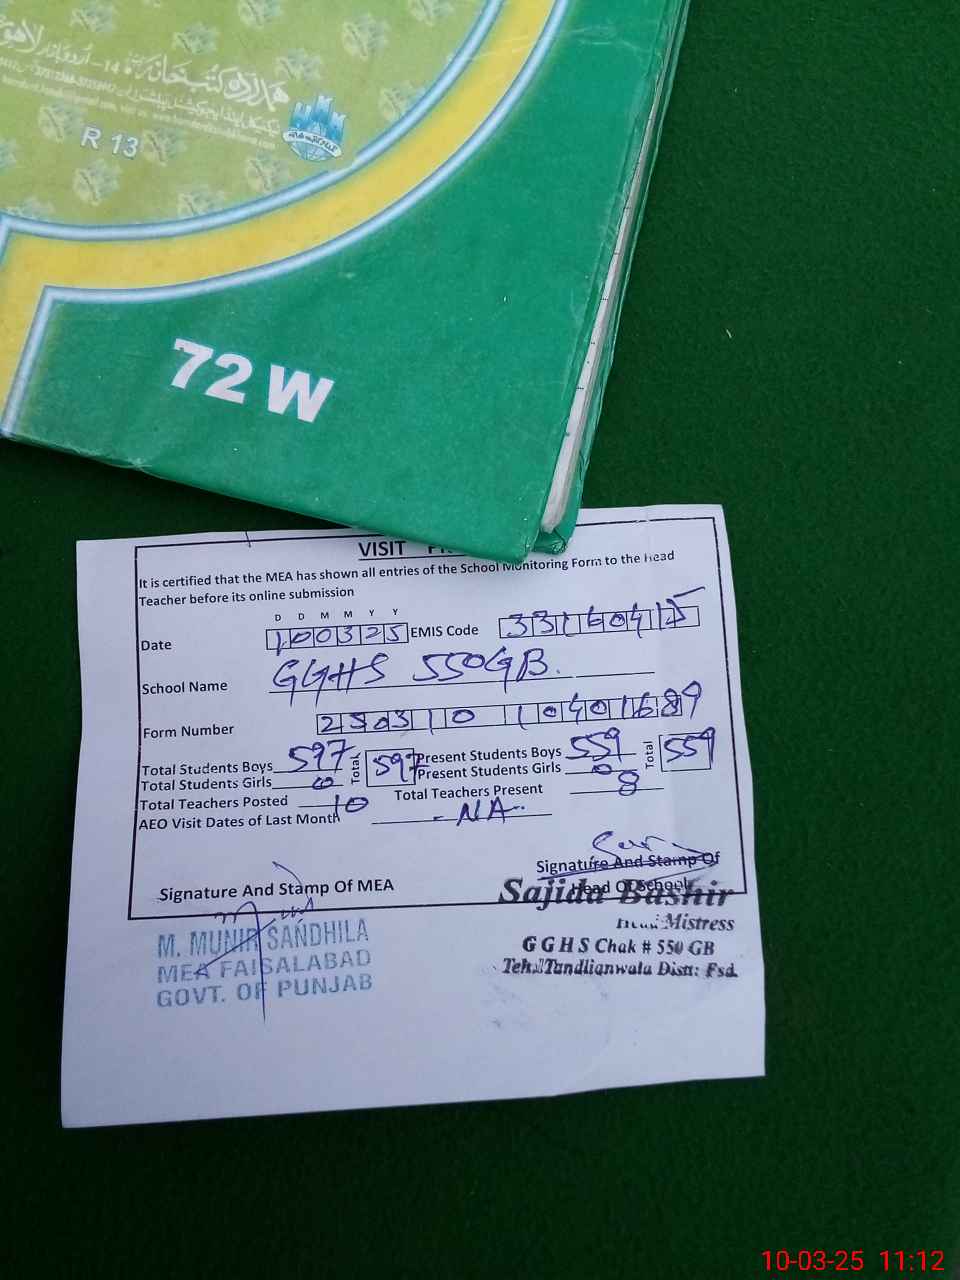 ہمدرد کتب خانہ
14-اردو بازار لاہور
R 13
72 W
VISIT
It is certified that the MEA has shown all entries of the School Monitoring Form to the Head
Teacher before its online submission
D D M M Y Y
Date 100325 EMIS Code 33160415
School Name GGHS 550GB.
Form Number
Total Students Boys 597 Total 597 Present Students Boys 559 Total 559
Total Students Girls 0 Present Students Girls 0
Total Teachers Posted 10 Total Teachers Present 8
AEO Visit Dates of Last Month - NA -
Signature And Stamp Of MEA Signature And Stamp Of
Head Of School
M. MUNIR SANDHILA
MEA FAISALABAD
GOVT. OF PUNJAB
Sajida Bashir
Head Mistress
G G H S Chak # 550 GB
Teh: Tandlianwala Distt: Fsd.
10-03-25 11:12